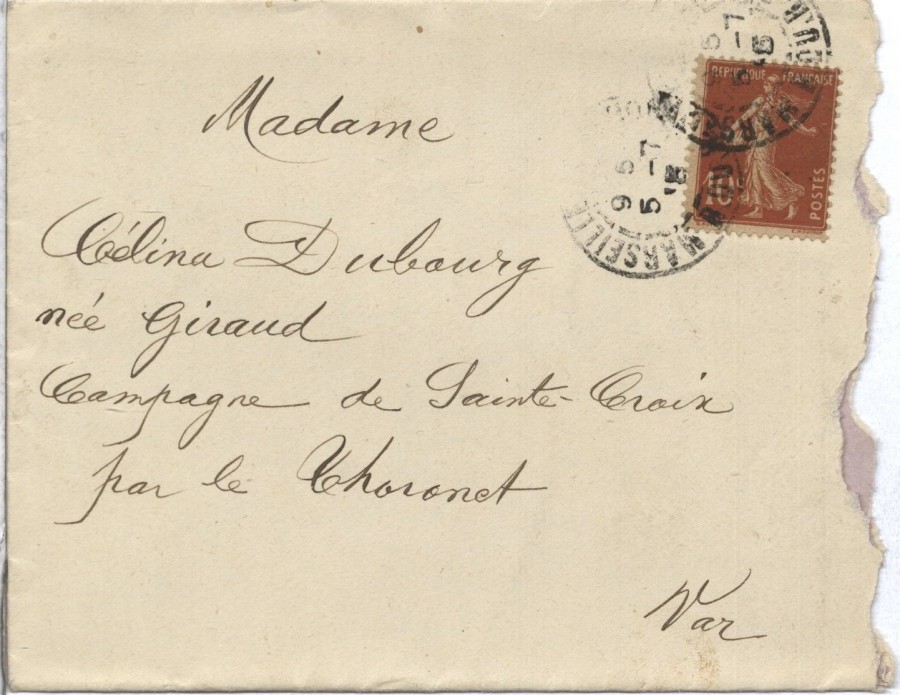 Madame
Célina Dubourg
née Giraud
Campagne de Sainte-Croix
par le Thoronet
Var
REPUBLIQUE FRANÇAISE
10c
POSTES
MARSEILLE
9 5
5 -7
15
MARSEILLE
5
-7
15